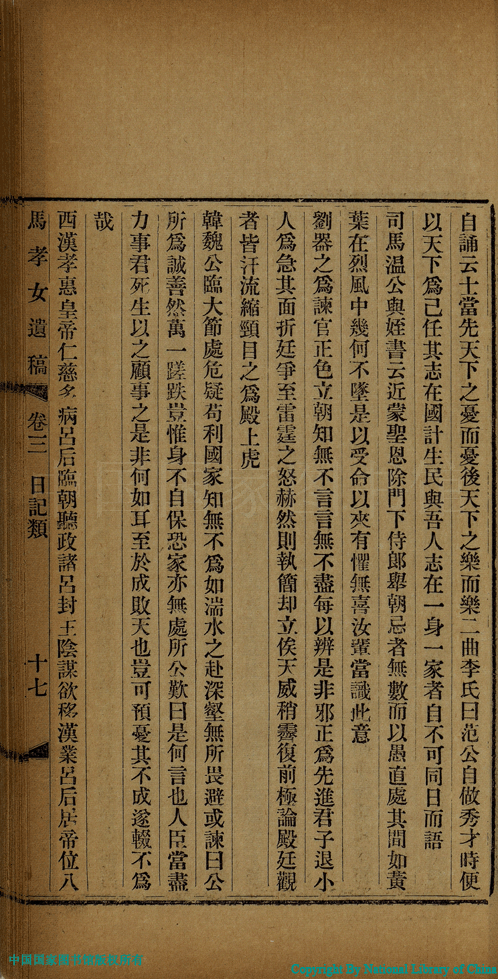 自誦云士當先天下之憂而憂後天下之樂而樂二曲李氏曰范公自做秀才時便
以天下爲己任其志在國計生民與吾人志在一身一家者自不可同日而語
司馬温公與姪書云近蒙聖恩除門下侍郎舉朝忌者無數而以愚直處其間如黃
葉在烈風中幾何不墜是以受命以來有懼無喜汝輩當識此意
劉器之爲諫官正色立朝知無不言言無不盡每以辨是非邪正爲先進君子退小
人爲急其面折廷爭至雷霆之怒赫然則執簡却立俟天威稍霽復前極論殿廷觀
者皆汗流縮頸目之爲殿上虎
韓魏公臨大節處危疑苟利國家知無不爲如湍水之赴深壑無所畏避或諫曰公
所爲誠善然萬一蹉跌豈惟身不自保恐家亦無處所公歎曰是何言也人臣當盡
力事君死生以之顧事之是非何如耳至於成敗天也豈可預憂其不成遂輟不爲
哉
西漢孝惠皇帝仁慈多病呂后臨朝聽政諸呂封王陰謀欲移漢業呂后居帝位八
馬孝女遺稿 卷三 日記類 十七
中国国家图书馆版权所有
Copyright By National Library of China